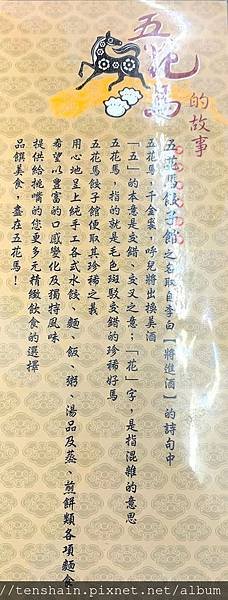 五花馬的故事
五花馬餃子館之名取自李白【將進酒】的詩句中
五花馬，千金裘，呼兒將出換美酒
「五」的本意是交錯、交叉之意；「花」字，是指混雜的意思
五花馬，指的就是毛色斑駁交錯的珍稀好馬
五花馬餃子館便取其珍稀之義
用心地呈上純手工各式水餃、麵、飯、粥、湯品及蒸、煎餅類各項麵食
希望以豐富的口感變化及獨特風味
提供給挑嘴的您更多元精緻飲食的選擇
品饌美食，盡在五花馬！
//tenshain.pixnet.net/album